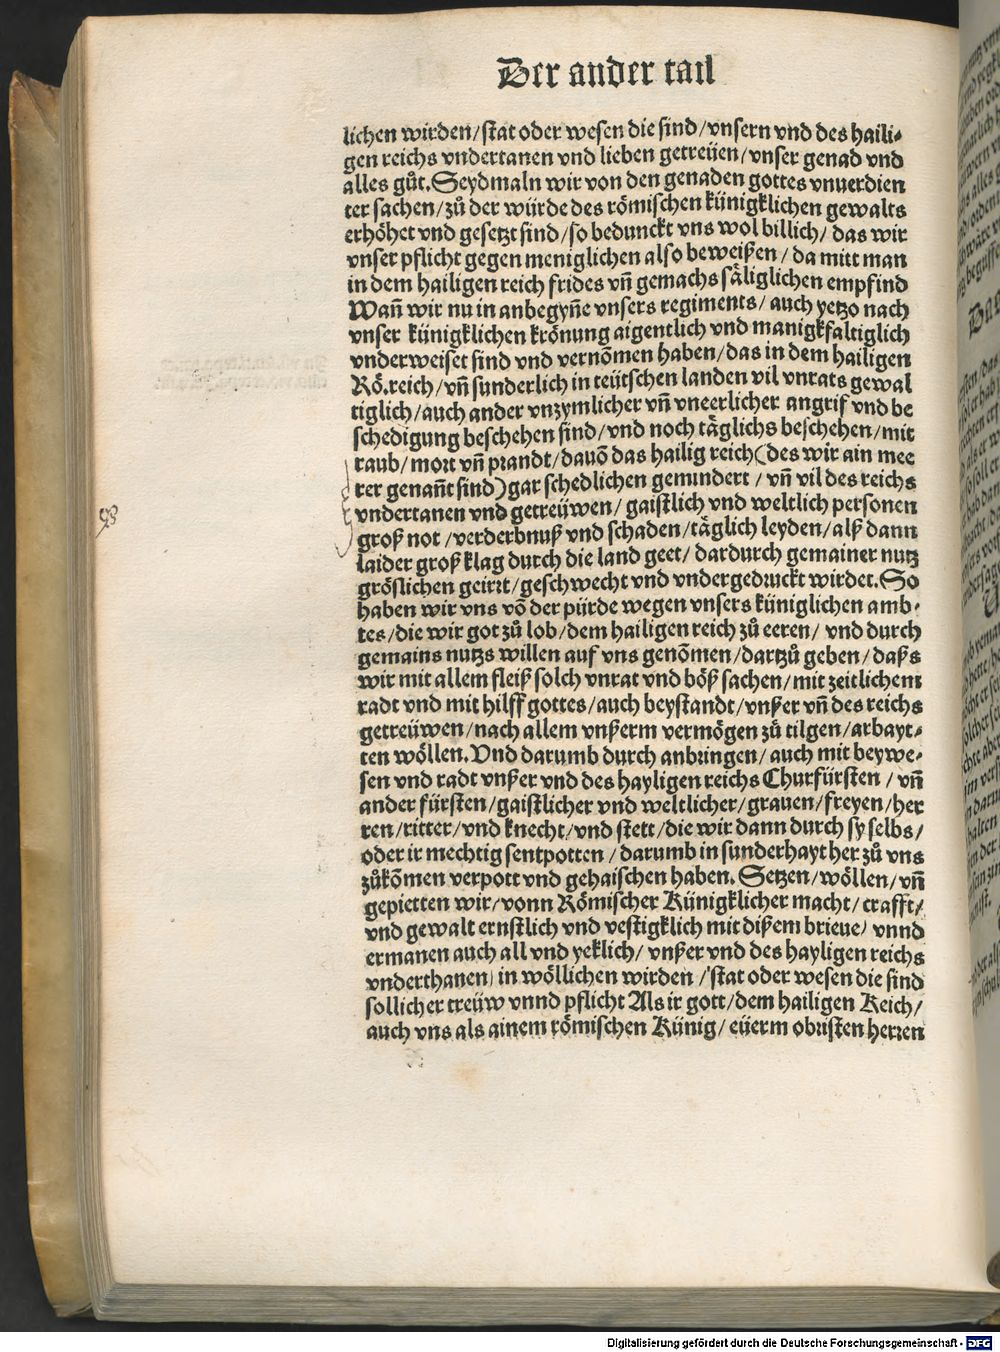 Der ander tail
lichen wirden/stat oder wesen die sind/vnsern vnd des haili⸗
gen reichs vndertanen vnd lieben getreüen/vnser genad vnd
alles gůt.Seydmaln wir von den genaden gottes vnuerdien
ter sachen/zů der würde des römischen künigklichen gewalts
erhöhet vnd gesetzt sind/so bedunckt vns wol billich/das wir
vnser pflicht gegen meniglichen also beweißen/da mitt man
in dem hailigen reich frides vñ gemachs säliglichen empfind
Wañ wir nu in anbegyñe vnsers regiments/auch yetzo nach
vnser künigklichen krönung aigentlich vnd manigkfaltiglich
vnderweiset sind vnd vernōmen haben/das in dem hailigen
Rö.reich/vñ sunderlich in teütschen landen vil vnrats gewal
tiglich/auch ander vnzymlicher vñ vneerlicher angrif vnd be
schedigung beschehen sind/vnd noch täglichs beschehen/mit
raub/mort vñ prandt/dauō das hailig reich(des wir ain mee
rer genañt sind)gar schedlichen gemindert/vñ vil des reichs
vndertanen vnd getreüwen/gaistlich vnd weltlich personen
groß not/verderbnuß vnd schaden/täglich leyden/alß dann
laider groß klag durch die land geet/dardurch gemainer nutz
gröslichen geirrt/geschwecht vnd vndergedruckt wirdet.So
haben wir vns vō der pürde wegen vnsers küniglichen amb⸗
tes/die wir got zů lob/dem hailigen reich zů eeren/vnd durch
gemains nutzs willen auf vns genōmen/dartzů geben/daßs
wir mit allem fleiß solch vnrat vnd böß sachen/mit zeitlichem
radt vnd mit hilff gottes/auch beystandt/vnßer vñ des reichs
getreüwen/nach allem vnßerm vermögen zů tilgen/arbayt⸗
ten wöllen.Vnd darumb durch anbringen/auch mit beywe⸗
sen vnd radt vnßer vnd des hayligen reichs Churfürsten/vñ
ander fürsten/gaistlicher vnd weltlicher/grauen/freyen/her
ren/ritter/vnd knecht/vnd stett/die wir dann durch sy selbs/
oder ir mechtig sentpotten/darumb in sunderhayt her zů vns
zůkōmen verpott vnd gehaischen haben.Setzen/wöllen/vñ
gepietten wir/vonn Römischer Künigklicher macht/crafft/
vnd gewalt ernstlich vnd vestigklich mit dißem brieue/vnnd
ermanen auch all vnd yeklich/vnßer vnd des hayligen reichs
vnderthanen/in wöllichen wirden/stat oder wesen die sind
sollicher treüw vnnd pflicht Als ir gott/dem hailigen Reich/
auch vns als ainem römischen Künig/eüerm obristen herren
Digitalisierung gefördert durch die Deutsche Forschungsgemeinschaft - DFG